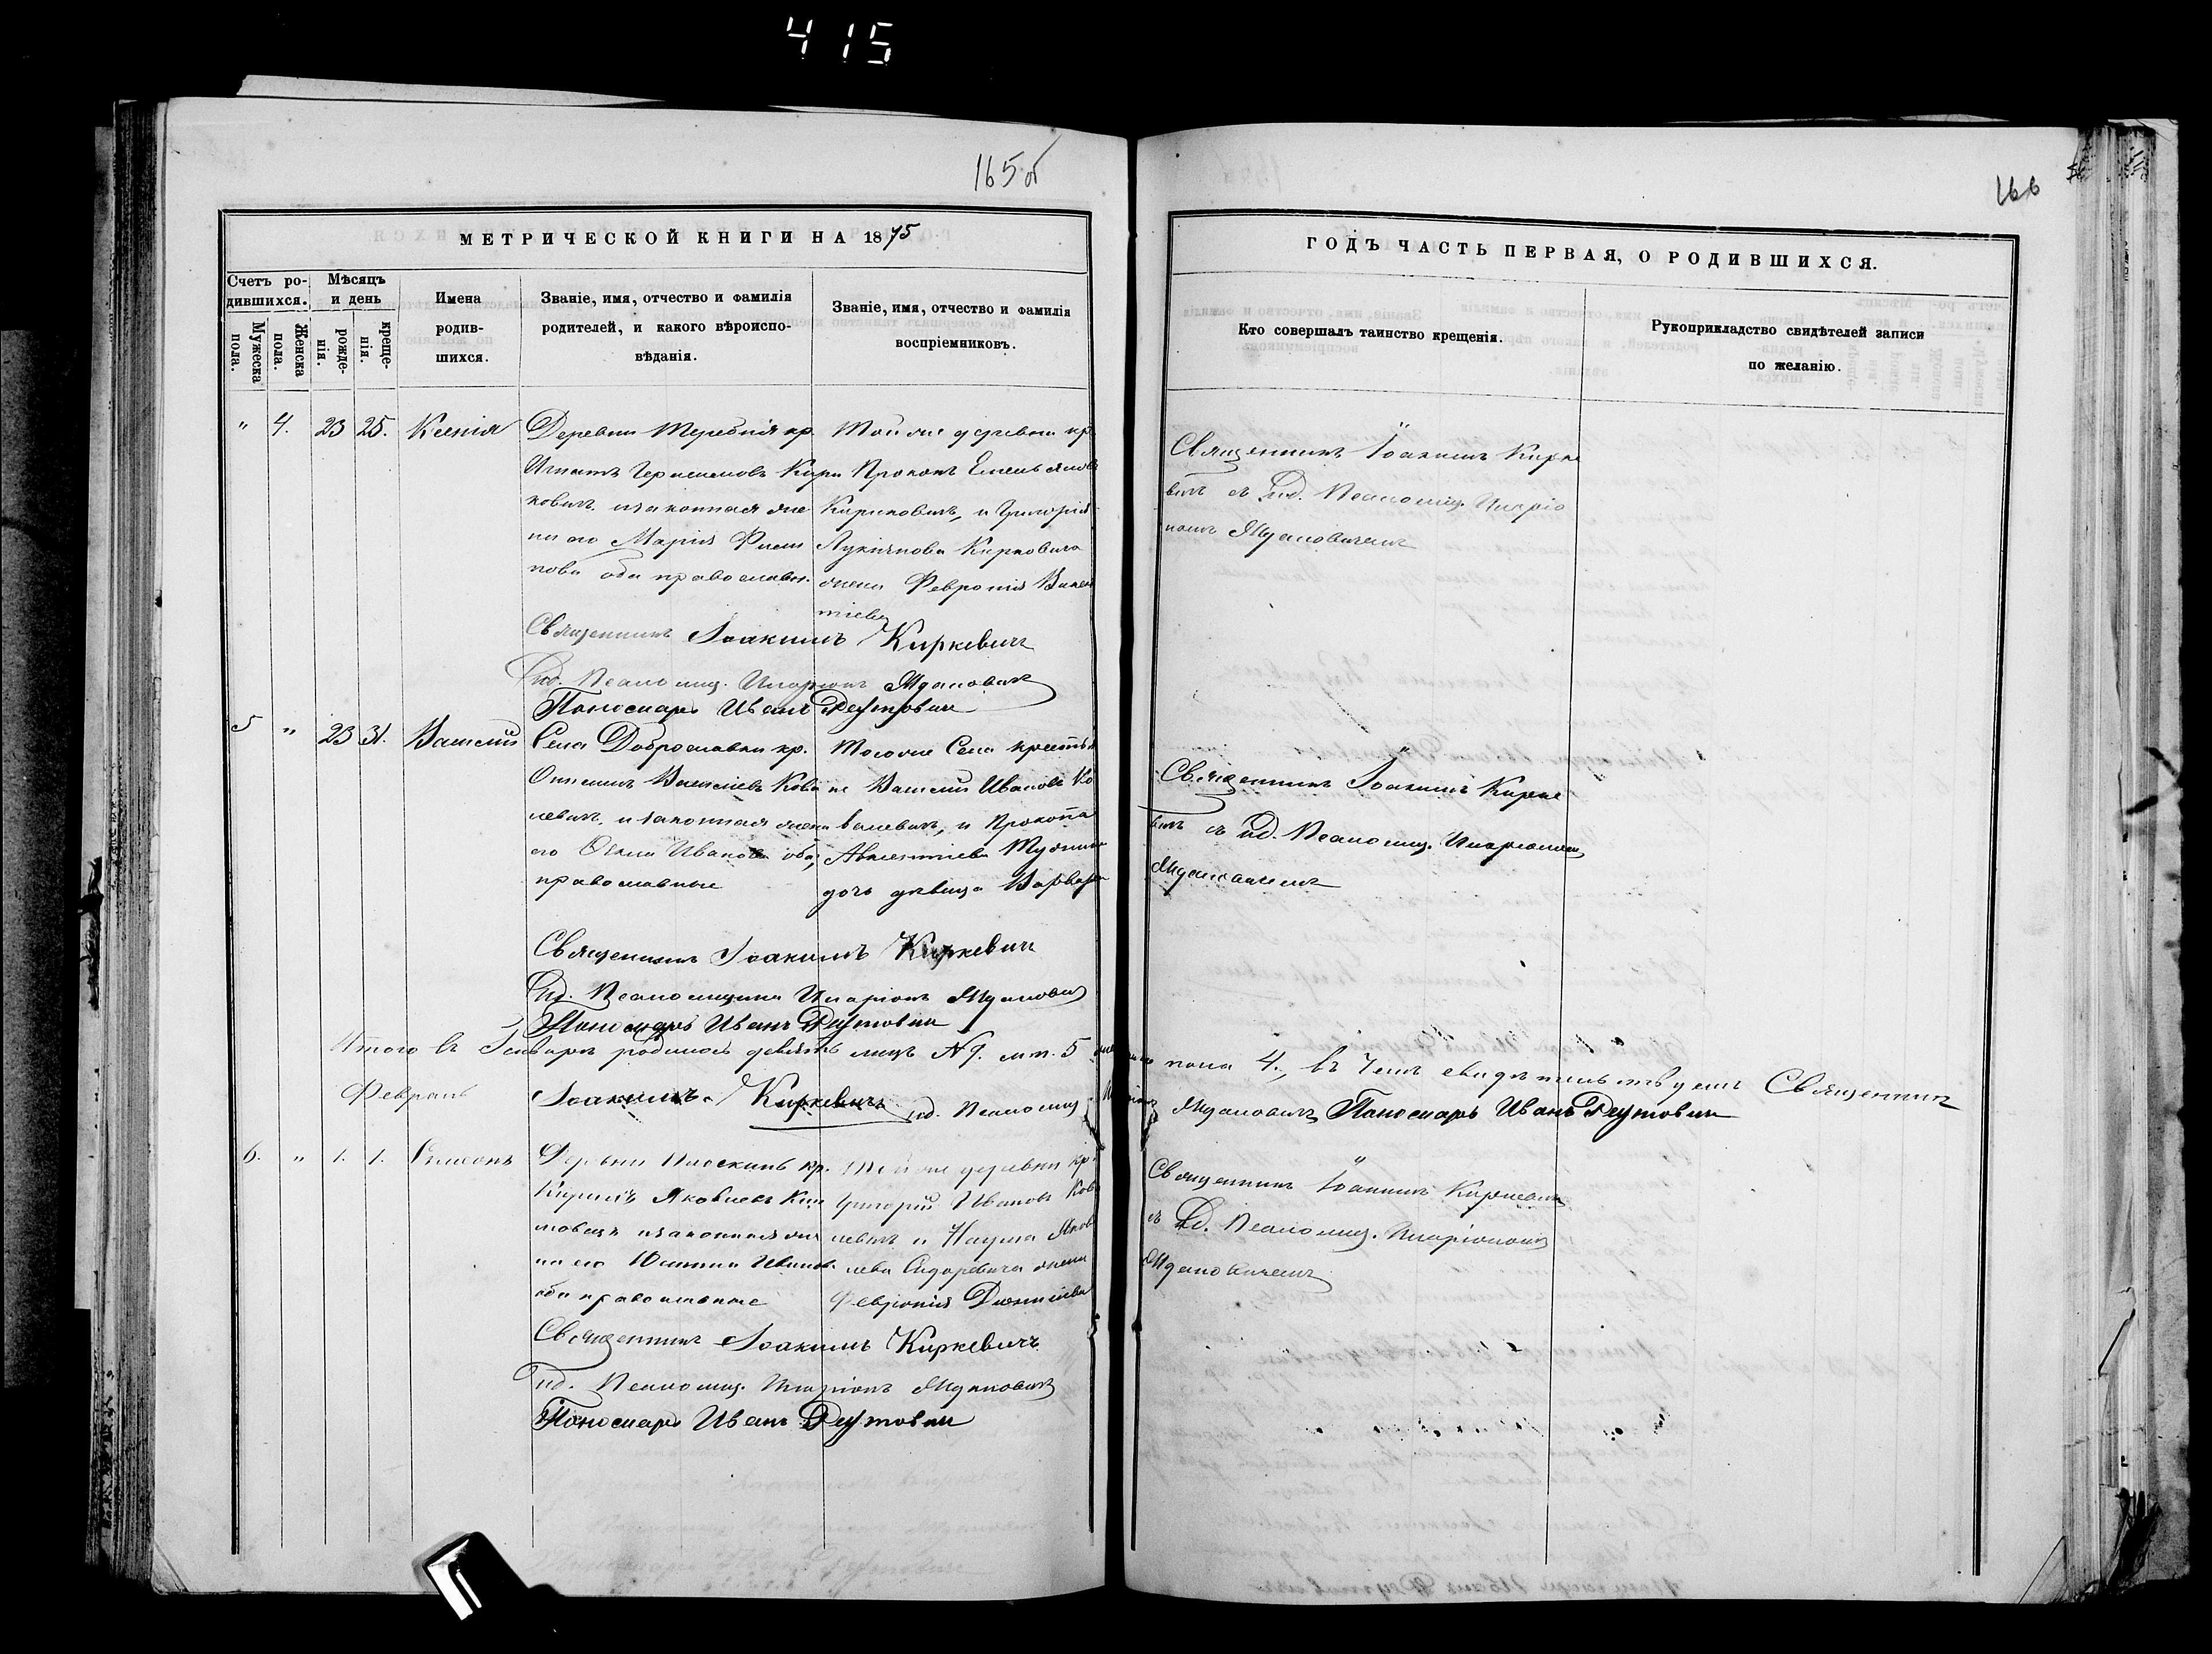 415
165 об
166
МЕТРИЧЕСКОЙ КНИГИ НА 1875
ГОДЪ ЧАСТЬ ПЕРВАЯ, О РОДИВШИХСЯ.
Счетъ ро-
дившихся.
Мужеска
пола.
Женска
пола.
Мѣсяцъ
и день
рожде-
нія.
креще-
нія.
Имена
родив-
шихся.
Званіе, имя, отчество и фамилія
родителей, и какого вѣроиспо-
вѣданія.
Званіе, имя, отчество и фамилія
воспріемниковъ.
Кто совершалъ таинство крещенія.
Рукоприкладство свидѣтелей записи
по желанію.
" 4. 23 25. Ксенія
Деревни кр.
Игнатъ Герасимовъ Кири
ковичъ изаконная же
на его Марія Фили
пова оба православн.
Той же деревни кр
Прокопъ Емельянов
Кириковичъ, и Григорія
Лукіянова Кириковича
жена Февронія Викен
тіева
Священникъ Іоакимъ Кирке
вичъ съ ид. Псаломщ. Иларіо
номъ Ждановичемъ
Священникъ Іоакимъ Киркевичъ
Ид. Псаломщ. Иларіонъ Ждановичъ
Пономарь Иванъ
5 " 23 31. Василій
Села Доброславки кр.
Онисимъ Василіевъ Кова
левичъ, и законная жена
его Иванова оба
православные
Того же Села крестья
не Василій Ивановъ Ко
валевичъ, и Прокопа
Авксентіева
дочь дѣвица Варвара
Священникъ Іоакимъ Кирке
вичъ съ ид. Псаломщ. Иларіономъ
Ждановичемъ
Священникъ Іоакимъ Киркевичъ
Ид. Псаломщика Иларіонъ Ждановичъ
Пономарь Иванъ
Итого въ Генварѣ родилось девять лицъ № 9. м. п. 5 пола 4., въ чемъ свидѣтельствуемъ Священникъ
Іоакимъ Киркевичъ ид. Псаломщ. Ждановичъ Пономарь Иванъ
Февраль
6. " 1. 1. Симеонъ
Деревни Плоскинь кр.
Кирилъ Яковлевъ Кли
мовецъ изаконная же
на его Иванов.
оба православные
Той же деревни кр.
Григорій Ивановъ Кова
левичъ и Наума Яков
лева Сидоревича жена
Февронія
Священникъ Іоакимъ Киркевичъ
съ Ид. Псаломщ. Иларіономъ
Ждановичемъ
Священникъ Іоакимъ Киркевичъ
Ид. Псаломщ. Иларіонъ Ждановичъ
Пономарь Иванъ